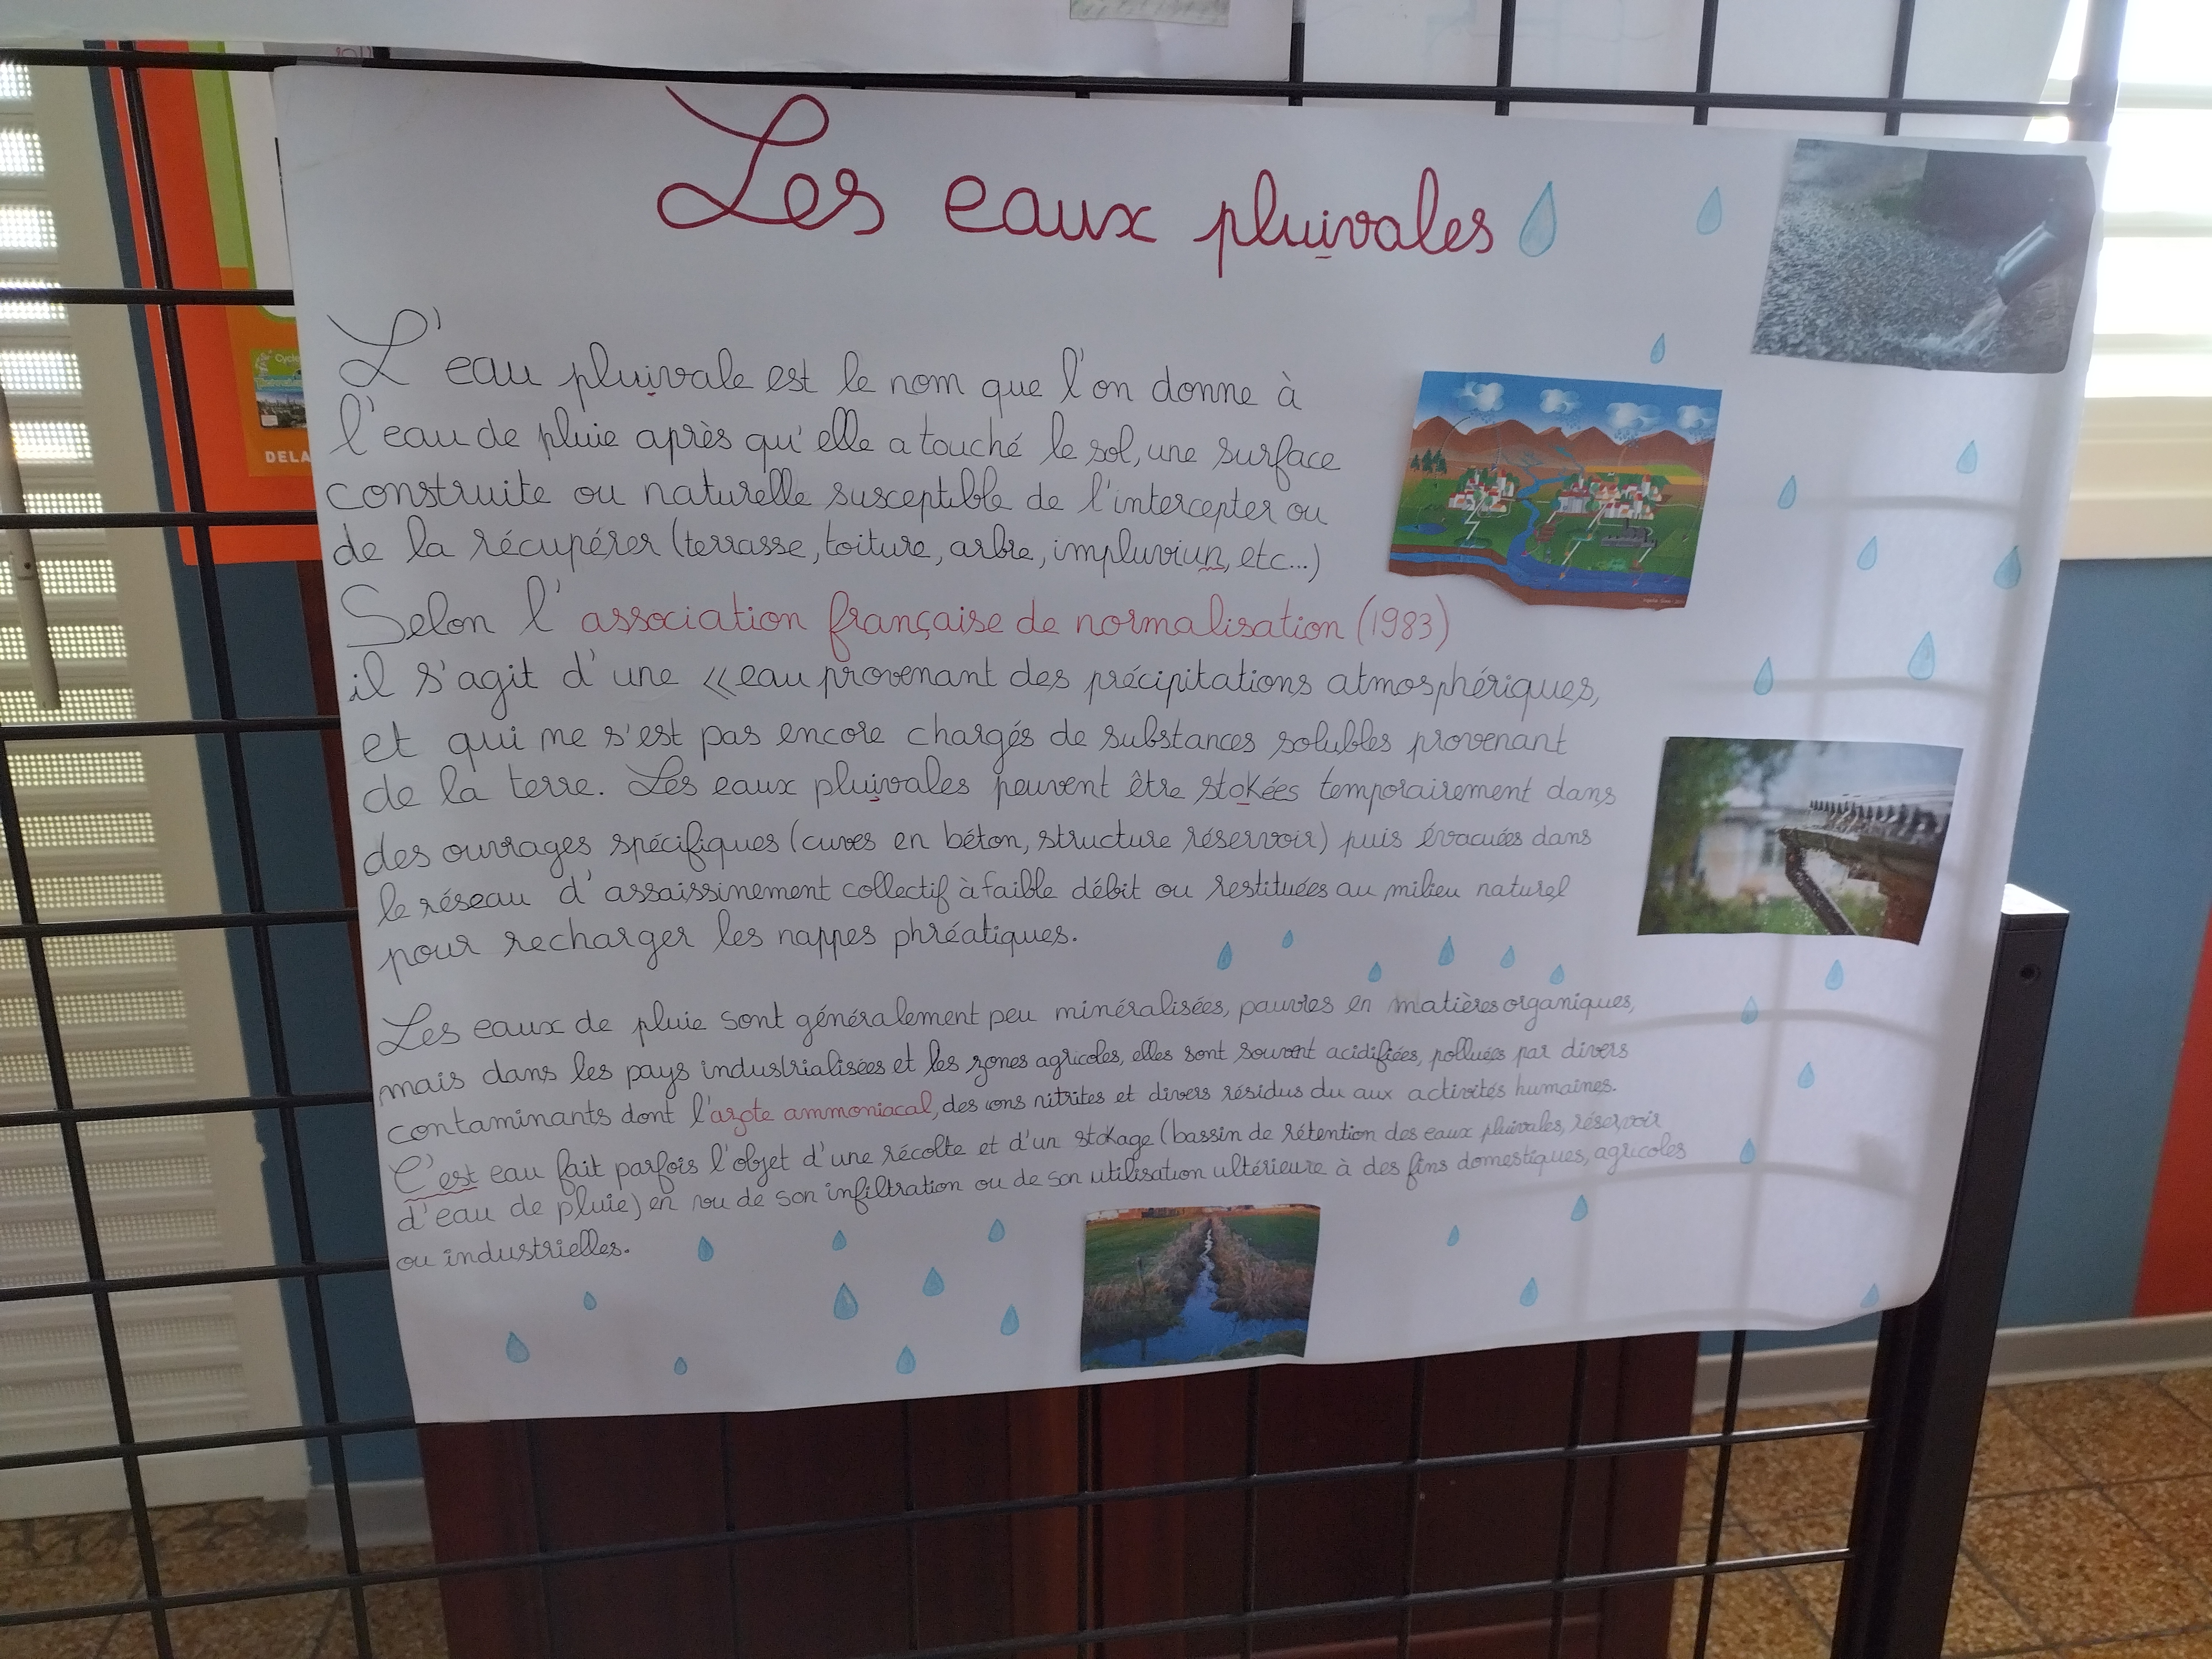 Les eaux pluivales
L'eau pluivale est le nom que l'on donne à
l'eau de pluie après qu'elle a touché le sol, une surface
construite ou naturelle susceptible de l'intercepter ou
de la récupérer (terrasse, toiture, arbre, impluviun, etc...)
Selon l'association française de normalisation (1983)
il s'agit d'une «eau provenant des précipitations atmosphériques,
et qui ne s'est pas encore chargés de substances solubles provenant
de la terre. Les eaux pluivales peuvent être stokées temporairement dans
des ouvrages spécifiques (cuves en béton, structure réservoir) puis évacuées dans
le réseau d'assaissinement collectif à faible débit ou restituées au milieu naturel
pour recharger les nappes phréatiques.
Les eaux de pluie sont généralement peu minéralisées, pauvres en matières organiques,
mais dans les pays industrialisées et les zones agricoles, elles sont souvent acidifiées, polluées par divers
contaminants dont l'azote ammoniacal, des ions nitrites et divers résidus du aux activités humaines.
C'est eau fait parfois l'objet d'une récolte et d'un stokage (bassin de rétention des eaux pluivales, réservoir
d'eau de pluie) en vu de son infiltration ou de son utilisation ultérieure à des fins domestiques, agricoles
ou industrielles.
Cycle
DELA